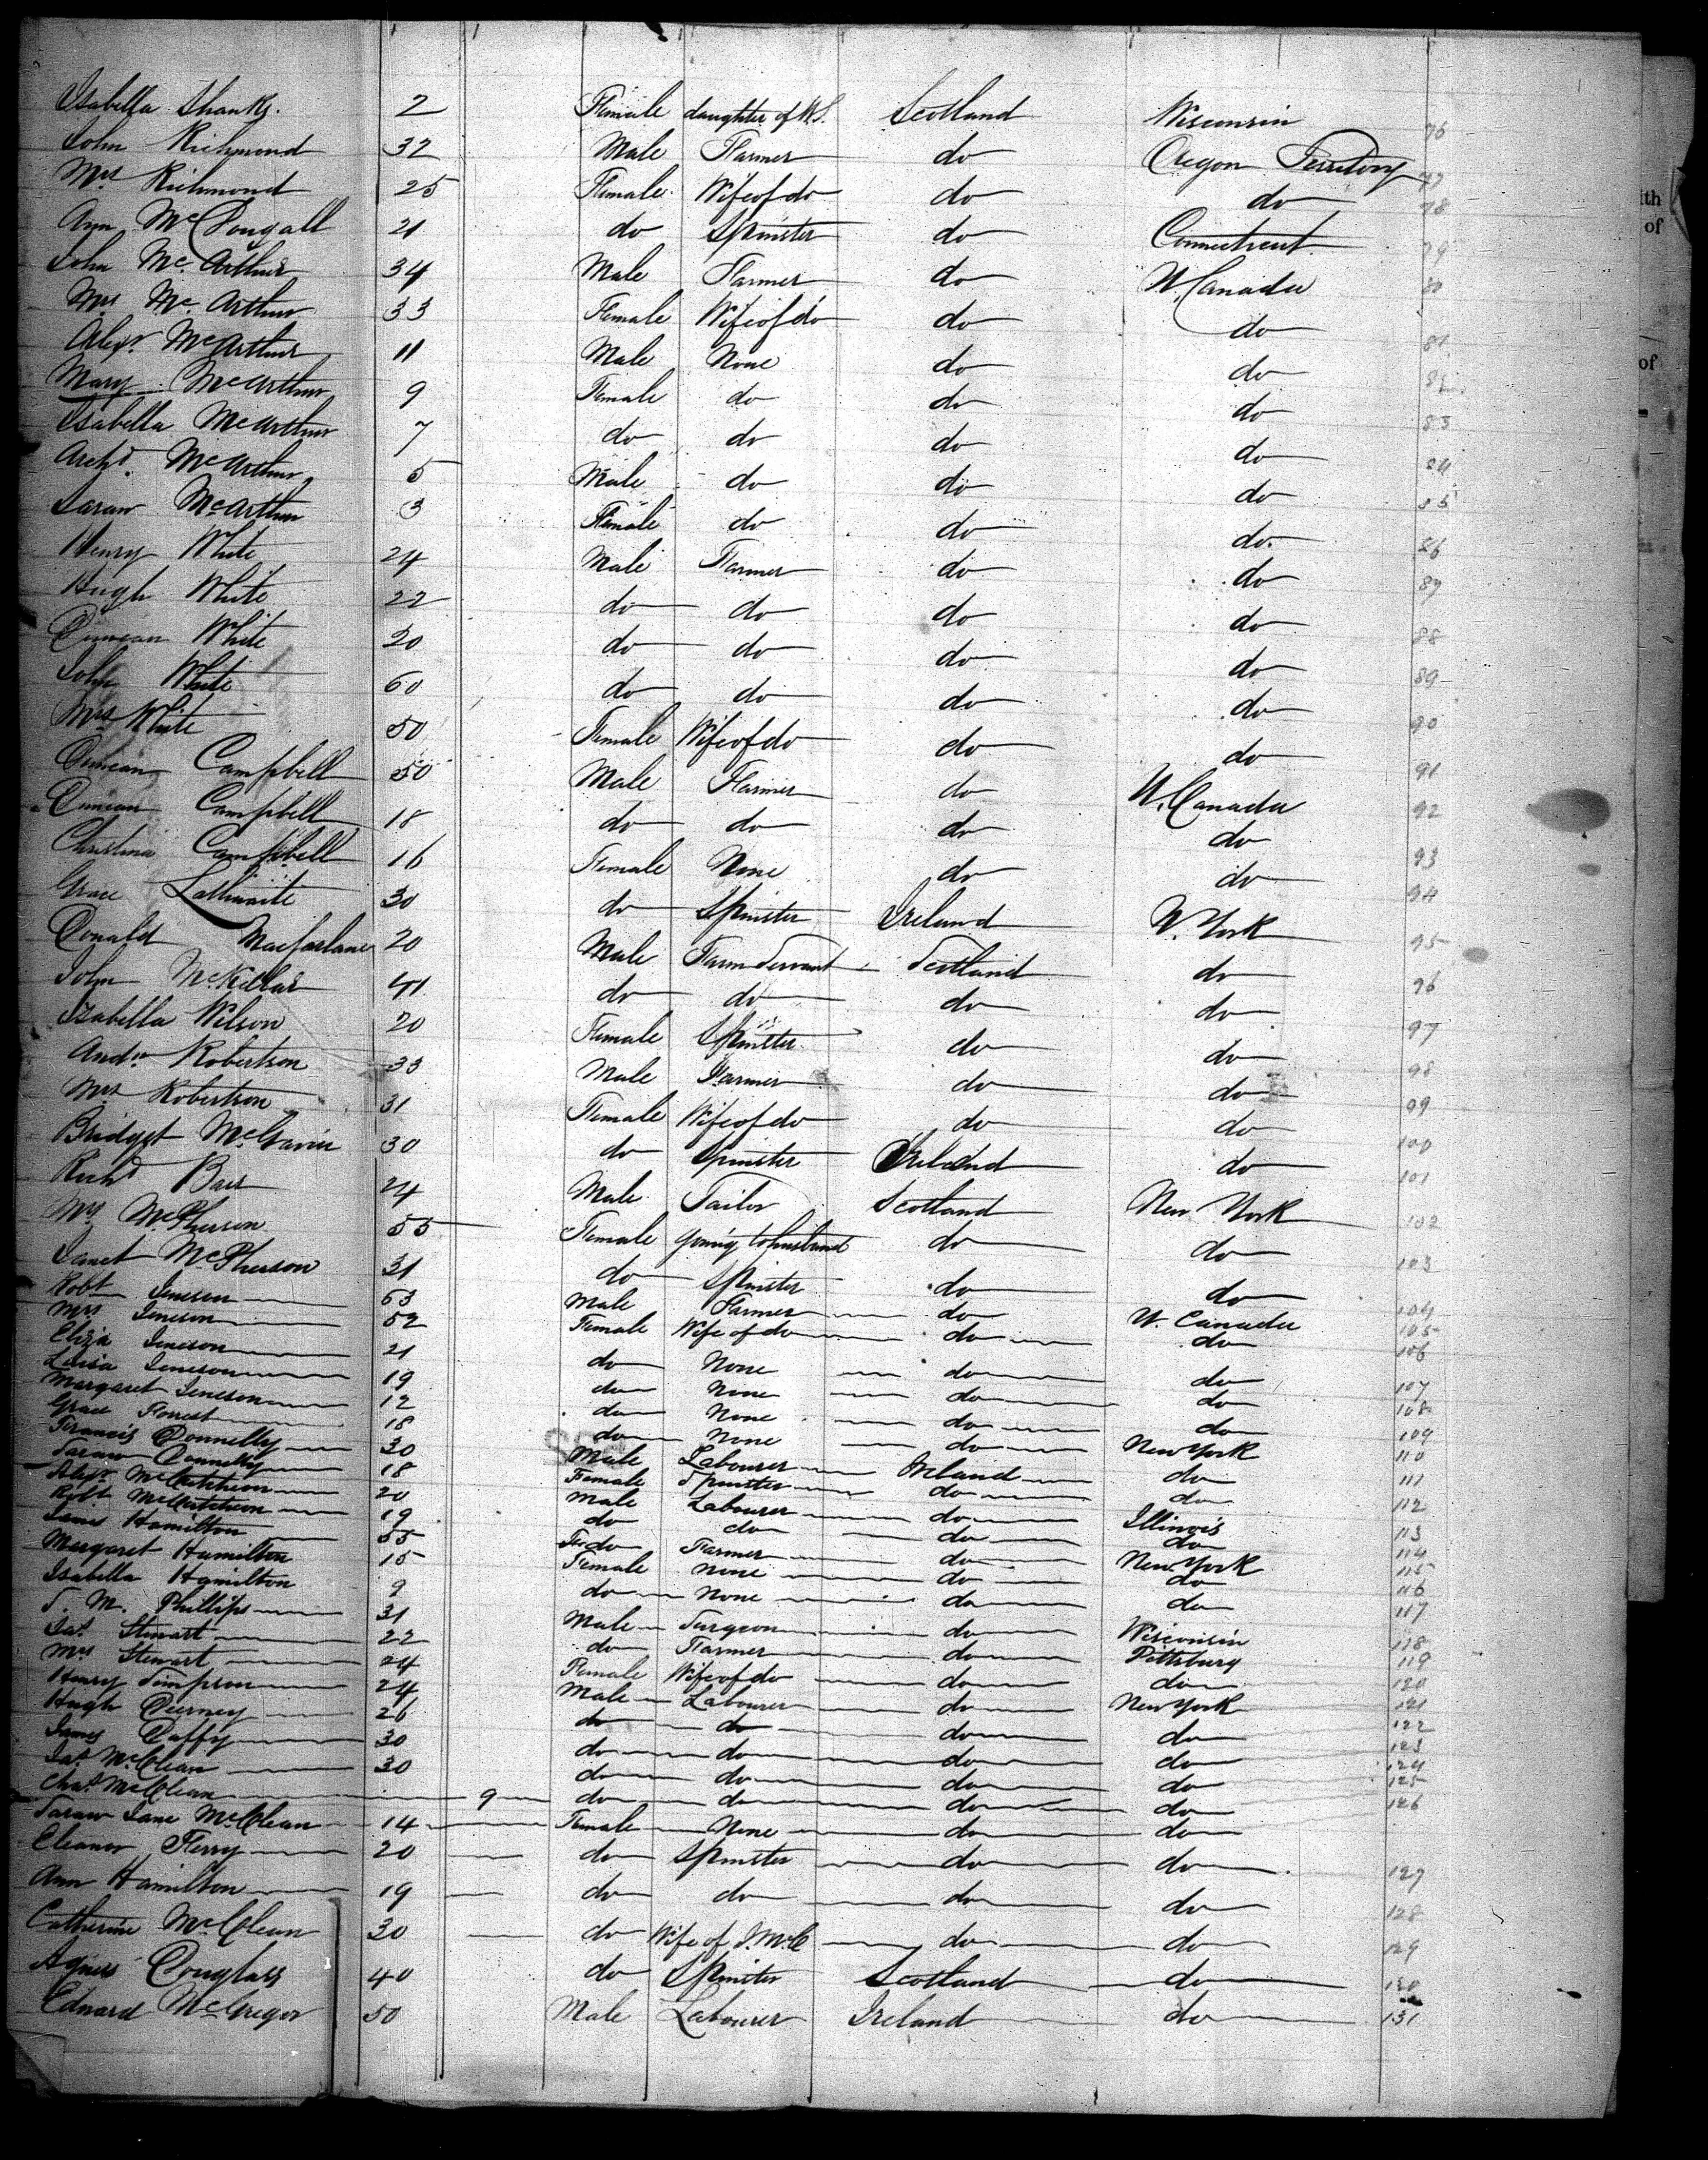 Isabella Shanks. 2 Female daughter of W.S. Scotland Wisconsin 76
John Richmond 32 Male Farmer do Oregon Territory 77
Mrs Richmond 25 Female Wife of do do do 78
Ann McDougall 21 do Spinster do Connecticut 79
John McArthur 34 Male Farmer do W. Canada 80
Mrs McArthur 33 Female Wife of do do do 81
Alexr. McArthur 11 Male None do do 82
Mary McArthur 9 Female do do do 83
Isabella McArthur 7 do do do do 84
Archd. McArthur 5 Male do do do 85
Saraw McArthur 3 Female do do do 86
Henry White 24 Male Farmer do do 87
Hugh White 22 do do do do 88
Duncan White 20 do do do do 89
John White 60 do do do do 90
Mrs White 50 Female Wife of do do do 91
Duncan Campbell 50 Male Farmer do W. Canada 92
Duncan Campbell 18 do do do do 93
Christina Campbell 16 Female None do do 94
Grace 30 do Spinster Ireland N. York 95
Donald Macfarlane 20 Male Farm Servant Scotland do 96
John McKellar 41 do do do do 97
Isabella Wilson 20 Female Spinster do do 98
Andw Robertson 33 Male Farmer do do 99
Mrs Robertson 31 Female Wife of do do do 100
Bridget McGavin 30 do Spinster Ireland do 101
Richd Barr 24 Male Tailor Scotland New York 102
Mrs McPherson 55 Female going to husband do do 103
Janet McPherson 31 do Spinster do do 104
Robt Jeneson 63 Male Farmer do W. Canada 105
Mrs Jeneson 52 Female Wife of do do do 106
Eliza Jeneson 21 do None do do 107
Luisa Jeneson 19 do None do do 108
Margaret Jeneson 12 do None do do 109
Grace Forrest 18 do None do New York 110
Francis Donnelly 30 Male Labourer Ireland do 111
Saraw Donnelly 18 Female Spinster do do 112
Alexr McCutcheon 20 Male Labourer do Illinois 113
Robt McCutcheon 19 do do do do 114
James Hamilton 55 do Farmer do New York 115
Margaret Hamilton 15 Female None do do 116
Isabella Hamilton 9 do None do do 117
J. M. Phillips 31 Male Surgeon do Wisconsin 118
Jas Stewart 22 do Farmer do Pittsburg 119
Mrs Stewart 24 Female Wife of do do do 120
Henry Simpson 24 Male Labourer do New York 121
Hugh 26 do do do do 122
James Duffy 30 do do do do 123
Jas McClean 30 do do do do 124
Chas McClean 9 do do do do 125
Saraw Jane McClean 14 Female None do do 126
Eleanor Ferry 20 do Spinster do do 127
Ann Hamilton 19 do do do do 128
Catherine McClean 30 do Wife of J. McC do do 129
Agnes Douglass 40 do Spinster Scotland do 130
Edward McGregor 50 Male Labourer Ireland do 131
ith
of
of